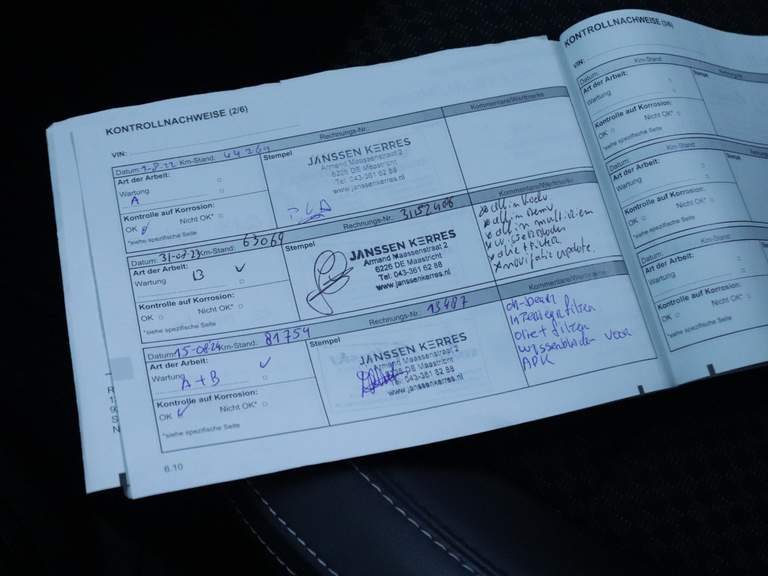 KONTROLLNACHWEISE (2/6)
VIN:
Datum: 9-8-22 Km-Stand: 44269
Rechnungs-Nr.
Kommentare/Wertmarke
Art der Arbeit:
Wartung
A
Kontrolle auf Korrosion:
OK Nicht OK*
*siehe spezifische Seite
Stempel
JANSSEN KERRES
Armand Maassenstraat 2
6226 DE Maastricht
Tel. 043-361 62 88
www.janssenkerres.nl
Datum: 31-08-23 Km-Stand: 63069
Rechnungs-Nr.
Kommentare/Wertmarke
Art der Arbeit:
Wartung B
Kontrolle auf Korrosion:
OK Nicht OK*
*siehe spezifische Seite
Stempel
JANSSEN KERRES
Armand Maassenstraat 2
6226 DE Maastricht
Tel. 043-361 62 88
www.janssenkerres.nl
* navigatie update.
Datum: 15-08-24 Km-Stand: 81754
Rechnungs-Nr. 13487
Kommentare/Wertmarke
Art der Arbeit:
Wartung A+B
Kontrolle auf Korrosion:
OK Nicht OK*
*siehe spezifische Seite
Stempel
JANSSEN KERRES
Armand Maassenstraat 2
6226 DE Maastricht
Tel. 043-361 62 88
www.janssenkerres.nl
interieurfilter
olie + filter
wisserbladen voor
APK
6.10
KONTROLLNACHWEISE
VIN:
Datum: Km-Stand:
Art der Arbeit:
Wartung
Kontrolle auf Korrosion:
OK Nicht OK*
*siehe spezifische Seite
Datum: Km-Stand:
Art der Arbeit:
Wartung
Kontrolle auf Korrosion:
OK Nicht OK*
*siehe spezifische Seite
Datum: Km-Stand:
Art der Arbeit:
Wartung
Kontrolle auf Korrosion:
OK Nicht OK*
*siehe spezifische Seite